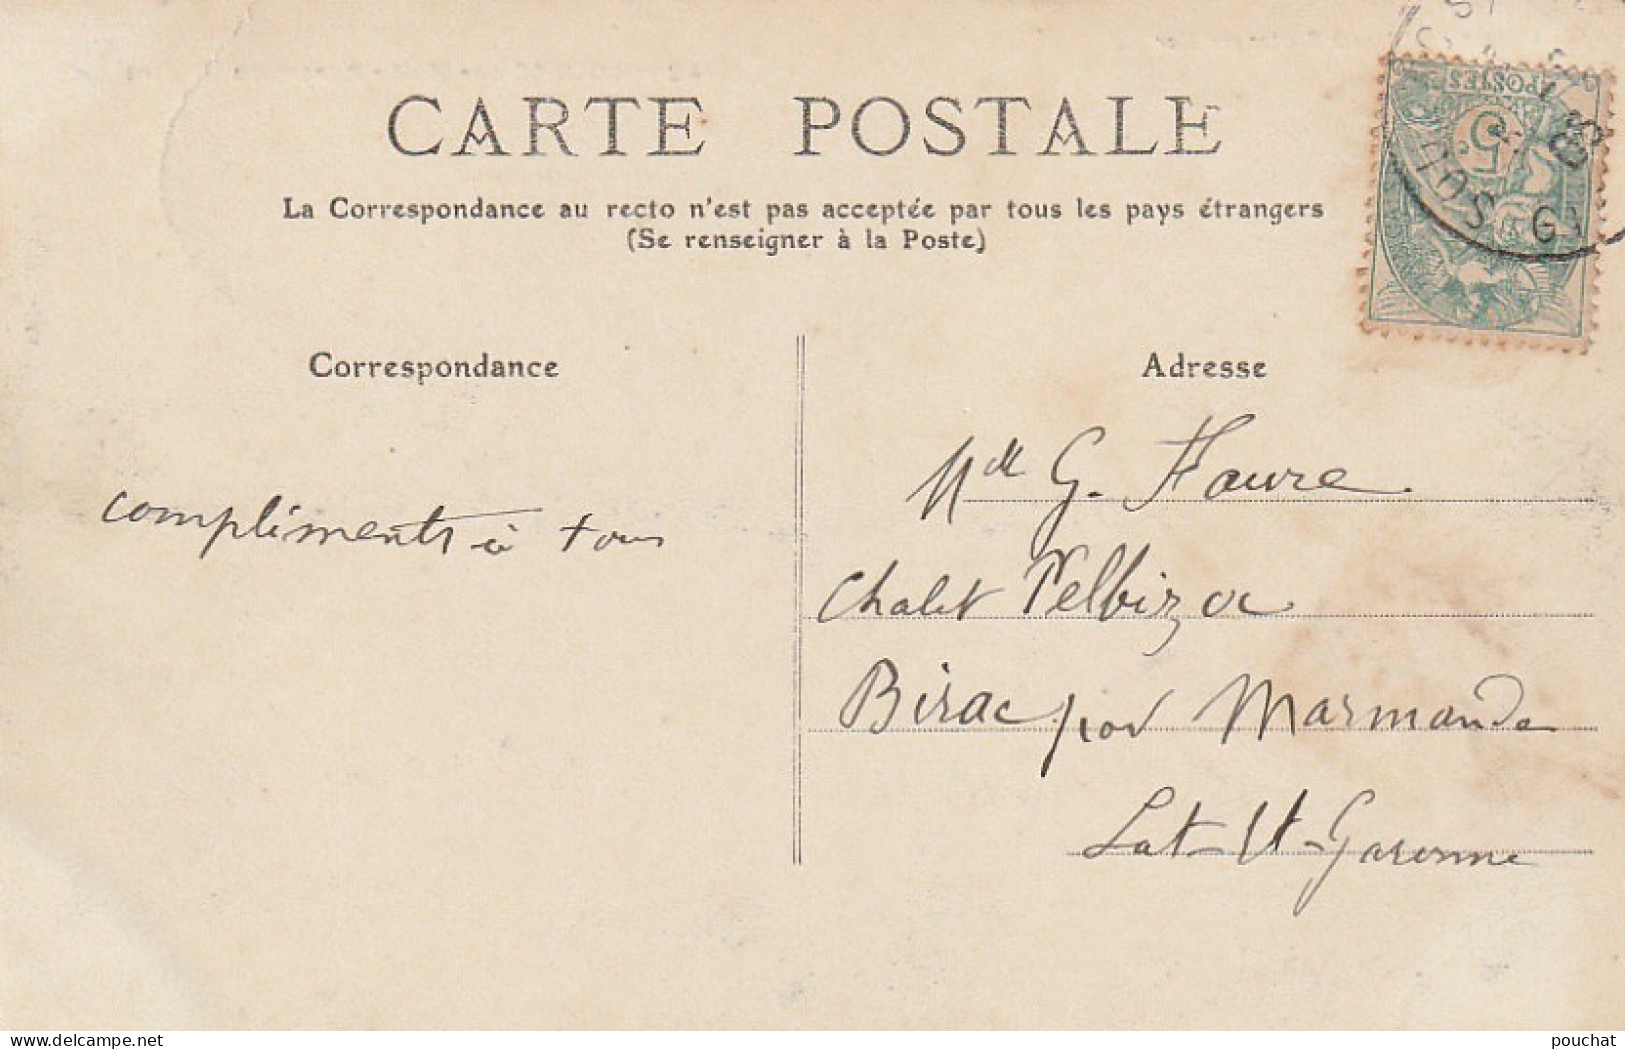 CARTE POSTALE
La Correspondance au recto n'est pas acceptée par tous les pays étrangers
(Se renseigner à la Poste)
POSTES
5c
Correspondance
Adresse
compliments à tous
Mlle G. Faure
Chalet Pelbizoc
Birac par Marmande
Lot-et-Garonne
delcampe.net
pouchat